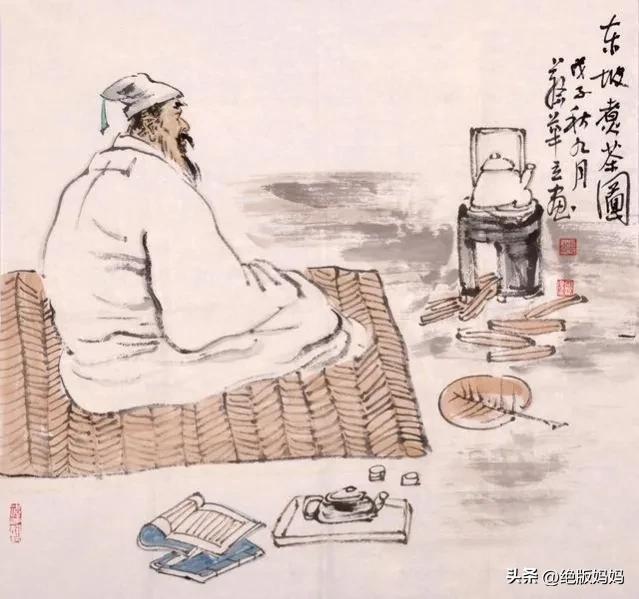 东坡煮茶圖
戊子秋九月
蔡華立画
头条 @绝版妈妈